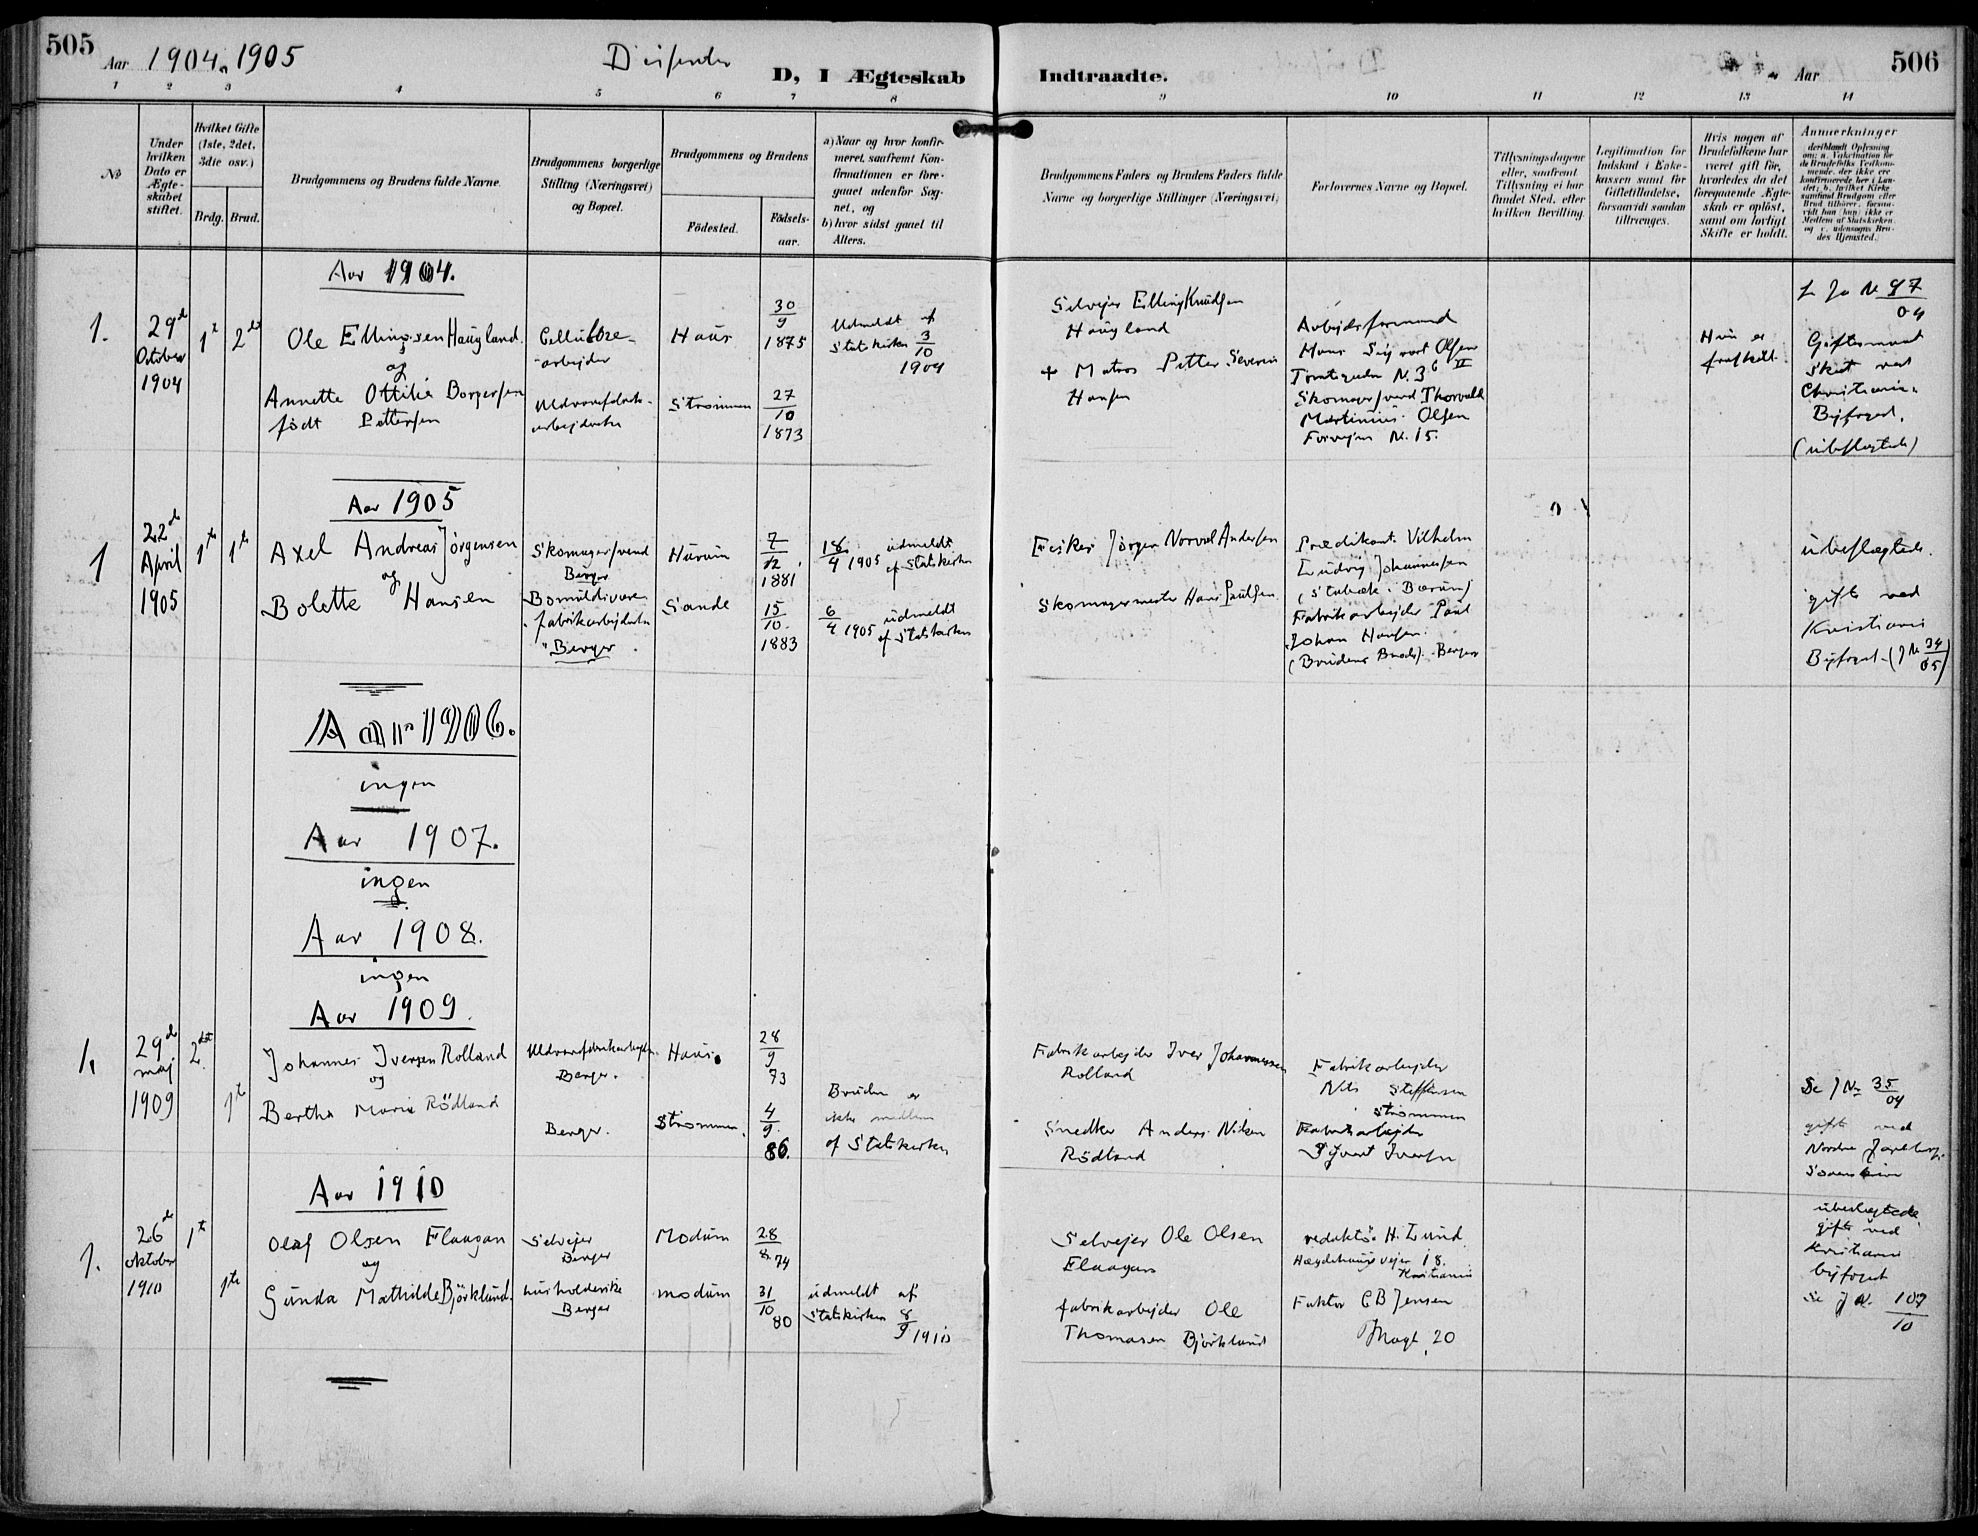 505
Aar 1904 1905
D, I Ægteskab
Indtraadte.
Aar
506
1 2 3 4 5 6 7 8 9 10 11 12 13 14
№
Under
hvilken
Dato er
Ægte-
skabet
stiftet.
Hvilket Gifte
(1ste, 2det,
3die osv.)
Brdg. Brud.
Brudgommens og Brudens fulde Navne.
Brudgommens borgerlige
Stilling (Næringsvei)
og Bopæl.
Brudgommens og Brudens
Fødested.
Fødsels-
aar.
a) Naar og hvor konfir-
meret, saafremt Kon-
firmationen er fore-
gaaet udenfor Sog-
net, og
b) hvor sidst gaaet til
Alters.
Brudgommens Faders og Brudens Faders fulde
Navne og borgerlige Stillinger (Næringsvei)
Forlovernes Navne og Bopæl.
Tillysningsdagene
eller, saafremt
Tillysning ei har
fundet Sted, efter
hvilken Bevilling.
Legitimation for
Indskud i Enke-
kassen samt for
Giftetilladelse,
forsaavidt saadan
tiltrænges.
Hvis nogen af
Brudefolkene har
været gift før,
hvorledes da det
foregaaende Ægte-
skab er opløst,
samt om lovligt
Skifte er holdt.
Anmerkninger
deriblandt Oplysning
om: a. Vakcination for
de Brudefolks Vedkom-
mende, der ikke ere
konfirmerede her i Lan-
det; b. hvilket Kirke-
samfund Brudgom eller
Brud tilhører, forsaa-
vidt han (hun) ikke er
Medlem af Statskirken,
og c. udensogns Bru-
des Hjemsted.
Aar 1904.
1.
29de
October
1904
1te 2det
Ole Ellingsen Haugland
og
Annette Ottilie Borgersen
født Pettersen
Cellulose-
arbejder
Uldvarefabrik-
arbejderske
Haus
Strømmen
30/9
1875
27/10
1873
Udmeldt af
Statskirken 3/10
1904
Selvejer Elling Knudsen
Haugland
+ Matros Petter Severin
Hansen
Arbejdsformand
Hans Sigvart Olsen
Skomagersvend Thorvald
Martinius Olsen
N. 15.
Hun er
fraskilt.
87
04
Giftermaal
skeet ved
Christiania
Byfoged.
(ubeslægtede)
Aar 1905
1
22de
April
1905
1te 1te
Axel Andreas Jørgensen
og
Bolette Hansen
Skomagersvend
Berger
Bomuldsvare-
fabrikarbejderske
Berger
Hurum
Sande
7/12
1881
15/10
1883
18/4 1905 udmeldt
af Statskirken
6/4 1905 udmeldt
af Statskirken
Fisker Jørgen Norval Andersen
Skomagermester Hans Paulsen
Prædikant Vilhelm
Ludvig Johannessen
(Stabæk i Bærum)
Fabrikarbejder Paul
Johan Hansen
(Brudens Broder) Berger
ubeslægtede.
gift ved
Kristiania
Byfoged (J№ 34/05)
Aar 1906.
ingen
Aar 1907.
ingen
Aar 1908.
ingen
Aar 1909.
1.
29de
maj
1909
2det
1te
Johannes Iversen Rolland
og
Bertha Marie Rödland
Uldvarefabrikarbejder
Berger.
Berger.
Haus
Strømmen.
28/9
73
4/9
86.
Bruden er
ikke medlem
af Statskirken
Fabrikarbejder Iver Johannessen
Rolland
Snedker Anders Nilsen
Rödland
Fabrikarbejder
Nils Steffensen
Strømmen
Fabrikarbejder
Sjvert Iversen
Se J№ 35/09
gift ved
Nordre Jarlsberg
Sorenskriver
Aar 1910
1.
26de
oktober
1910
1te
1te
Olaf Olsen Flaagan
og
Gunda Mathilde Björklund.
Selvejer
Berger
husholderske
Berger
Modum
modum
28/8 74
31/10 80
udmeldt af
Statskirken 8/9 1910
Selvejer Ole Olsen
Flaagan
fabrikarbejder Ole
Thomasen Björklund
redaktör H. Lund
Hægdehaugsvejen 18.
Kristiania
Faktor C B Jensen
20
ubeslægtede
gift ved
Kristiania
byfoged
Se J№ 107/10